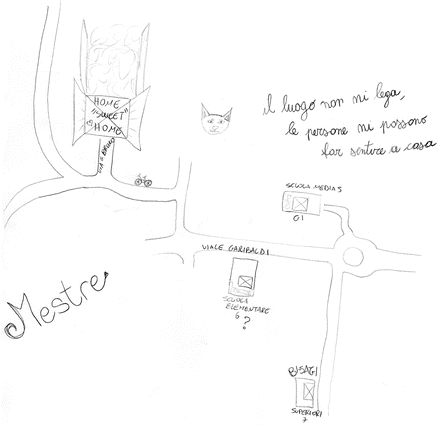 HOME
"SWEET"
HOME
il luogo non mi lega,
le persone mi possono
far sentire a casa
SCUOLA MEDIA
VIALE GARIBALDI
SCUOLA
ELEMENTARE
?
Mestre
SUPERIORI
7